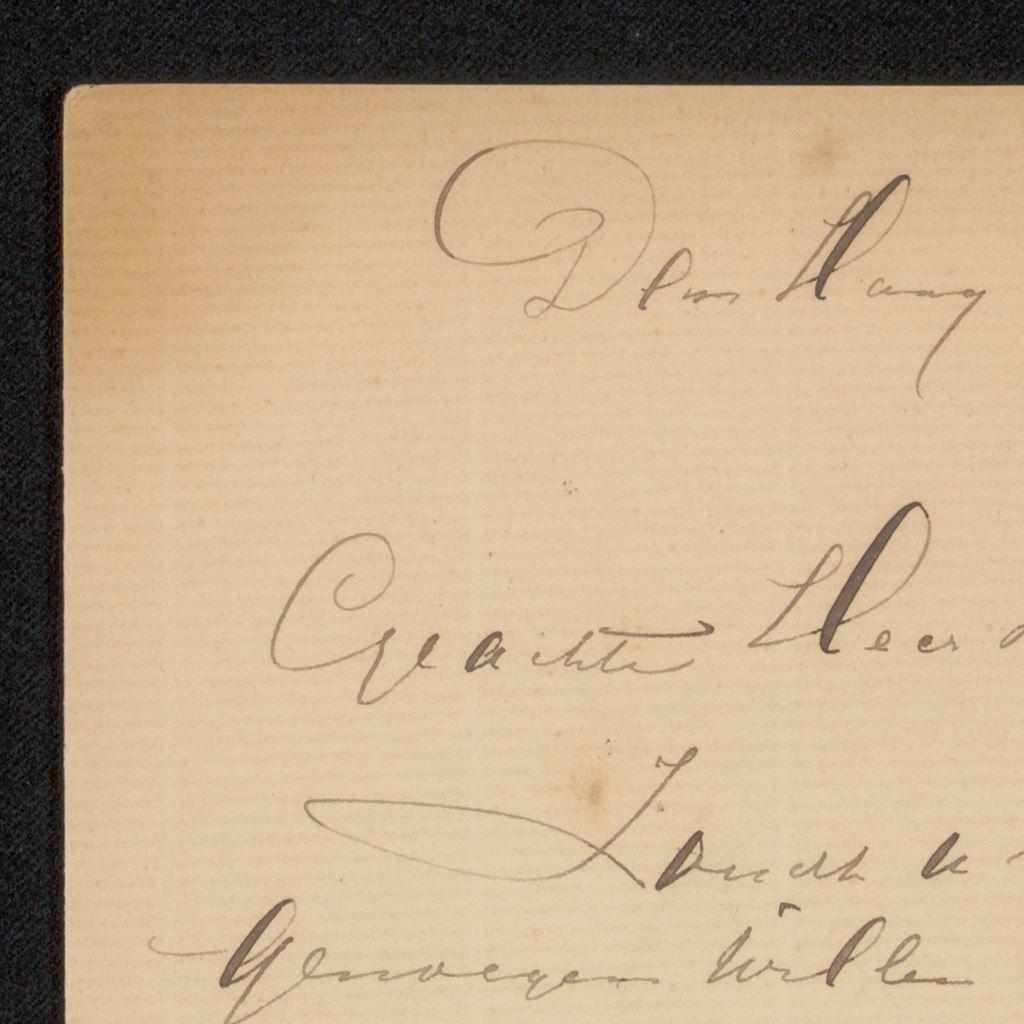 Den Haag
Geachte Heer
Zoudt u
genoegen willen